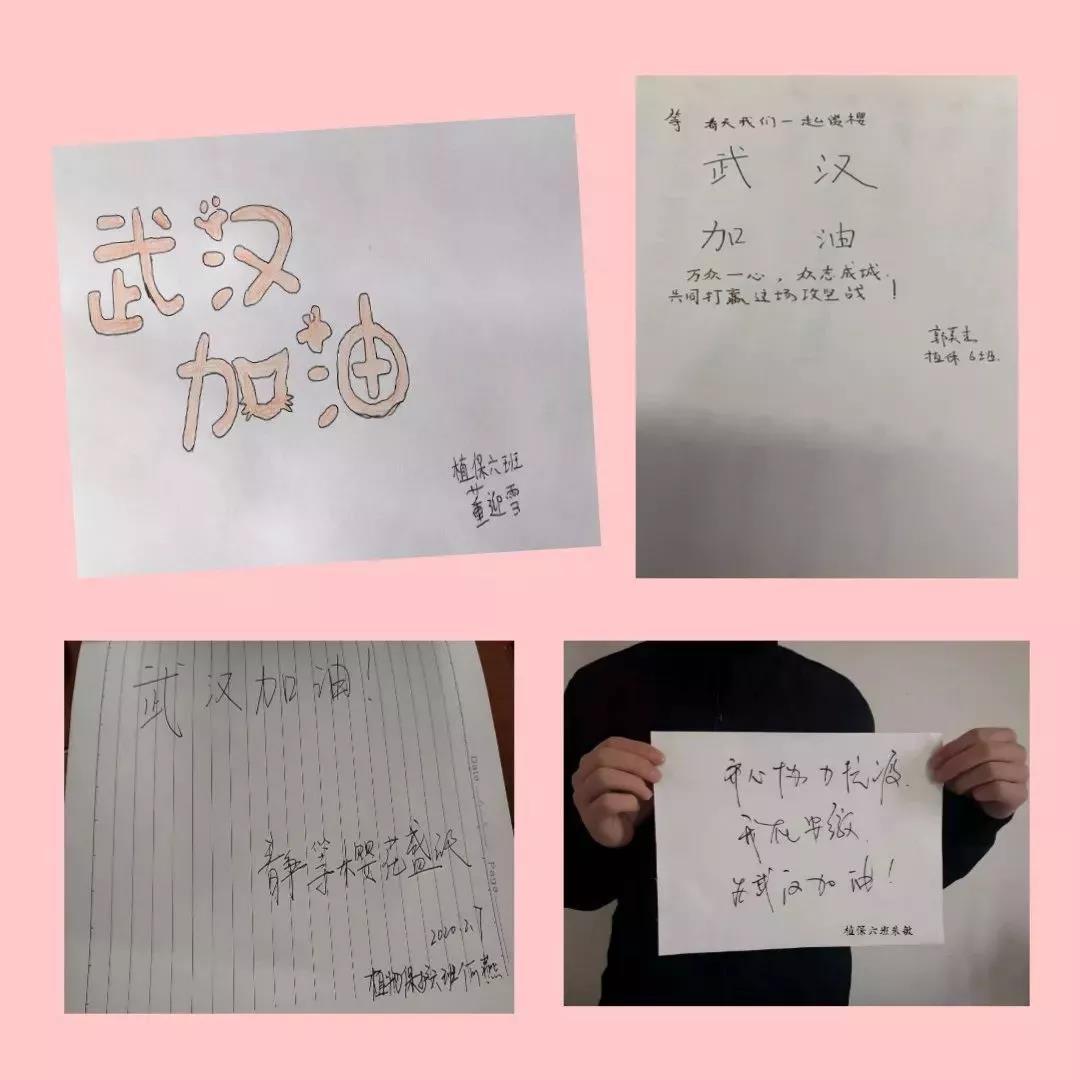 武汉
加油
植保六班
董迎雪
等 春天我们一起赏樱
武 汉
加 油
万众一心，众志成城！
共同打赢这场攻坚战！
植保6班
武汉加油！
静等樱花盛
2020.2.7
植物保护六班何燕
Date
Page
齐心协力抗疫
我在安徽
为武汉加油！
植保六班朱敏